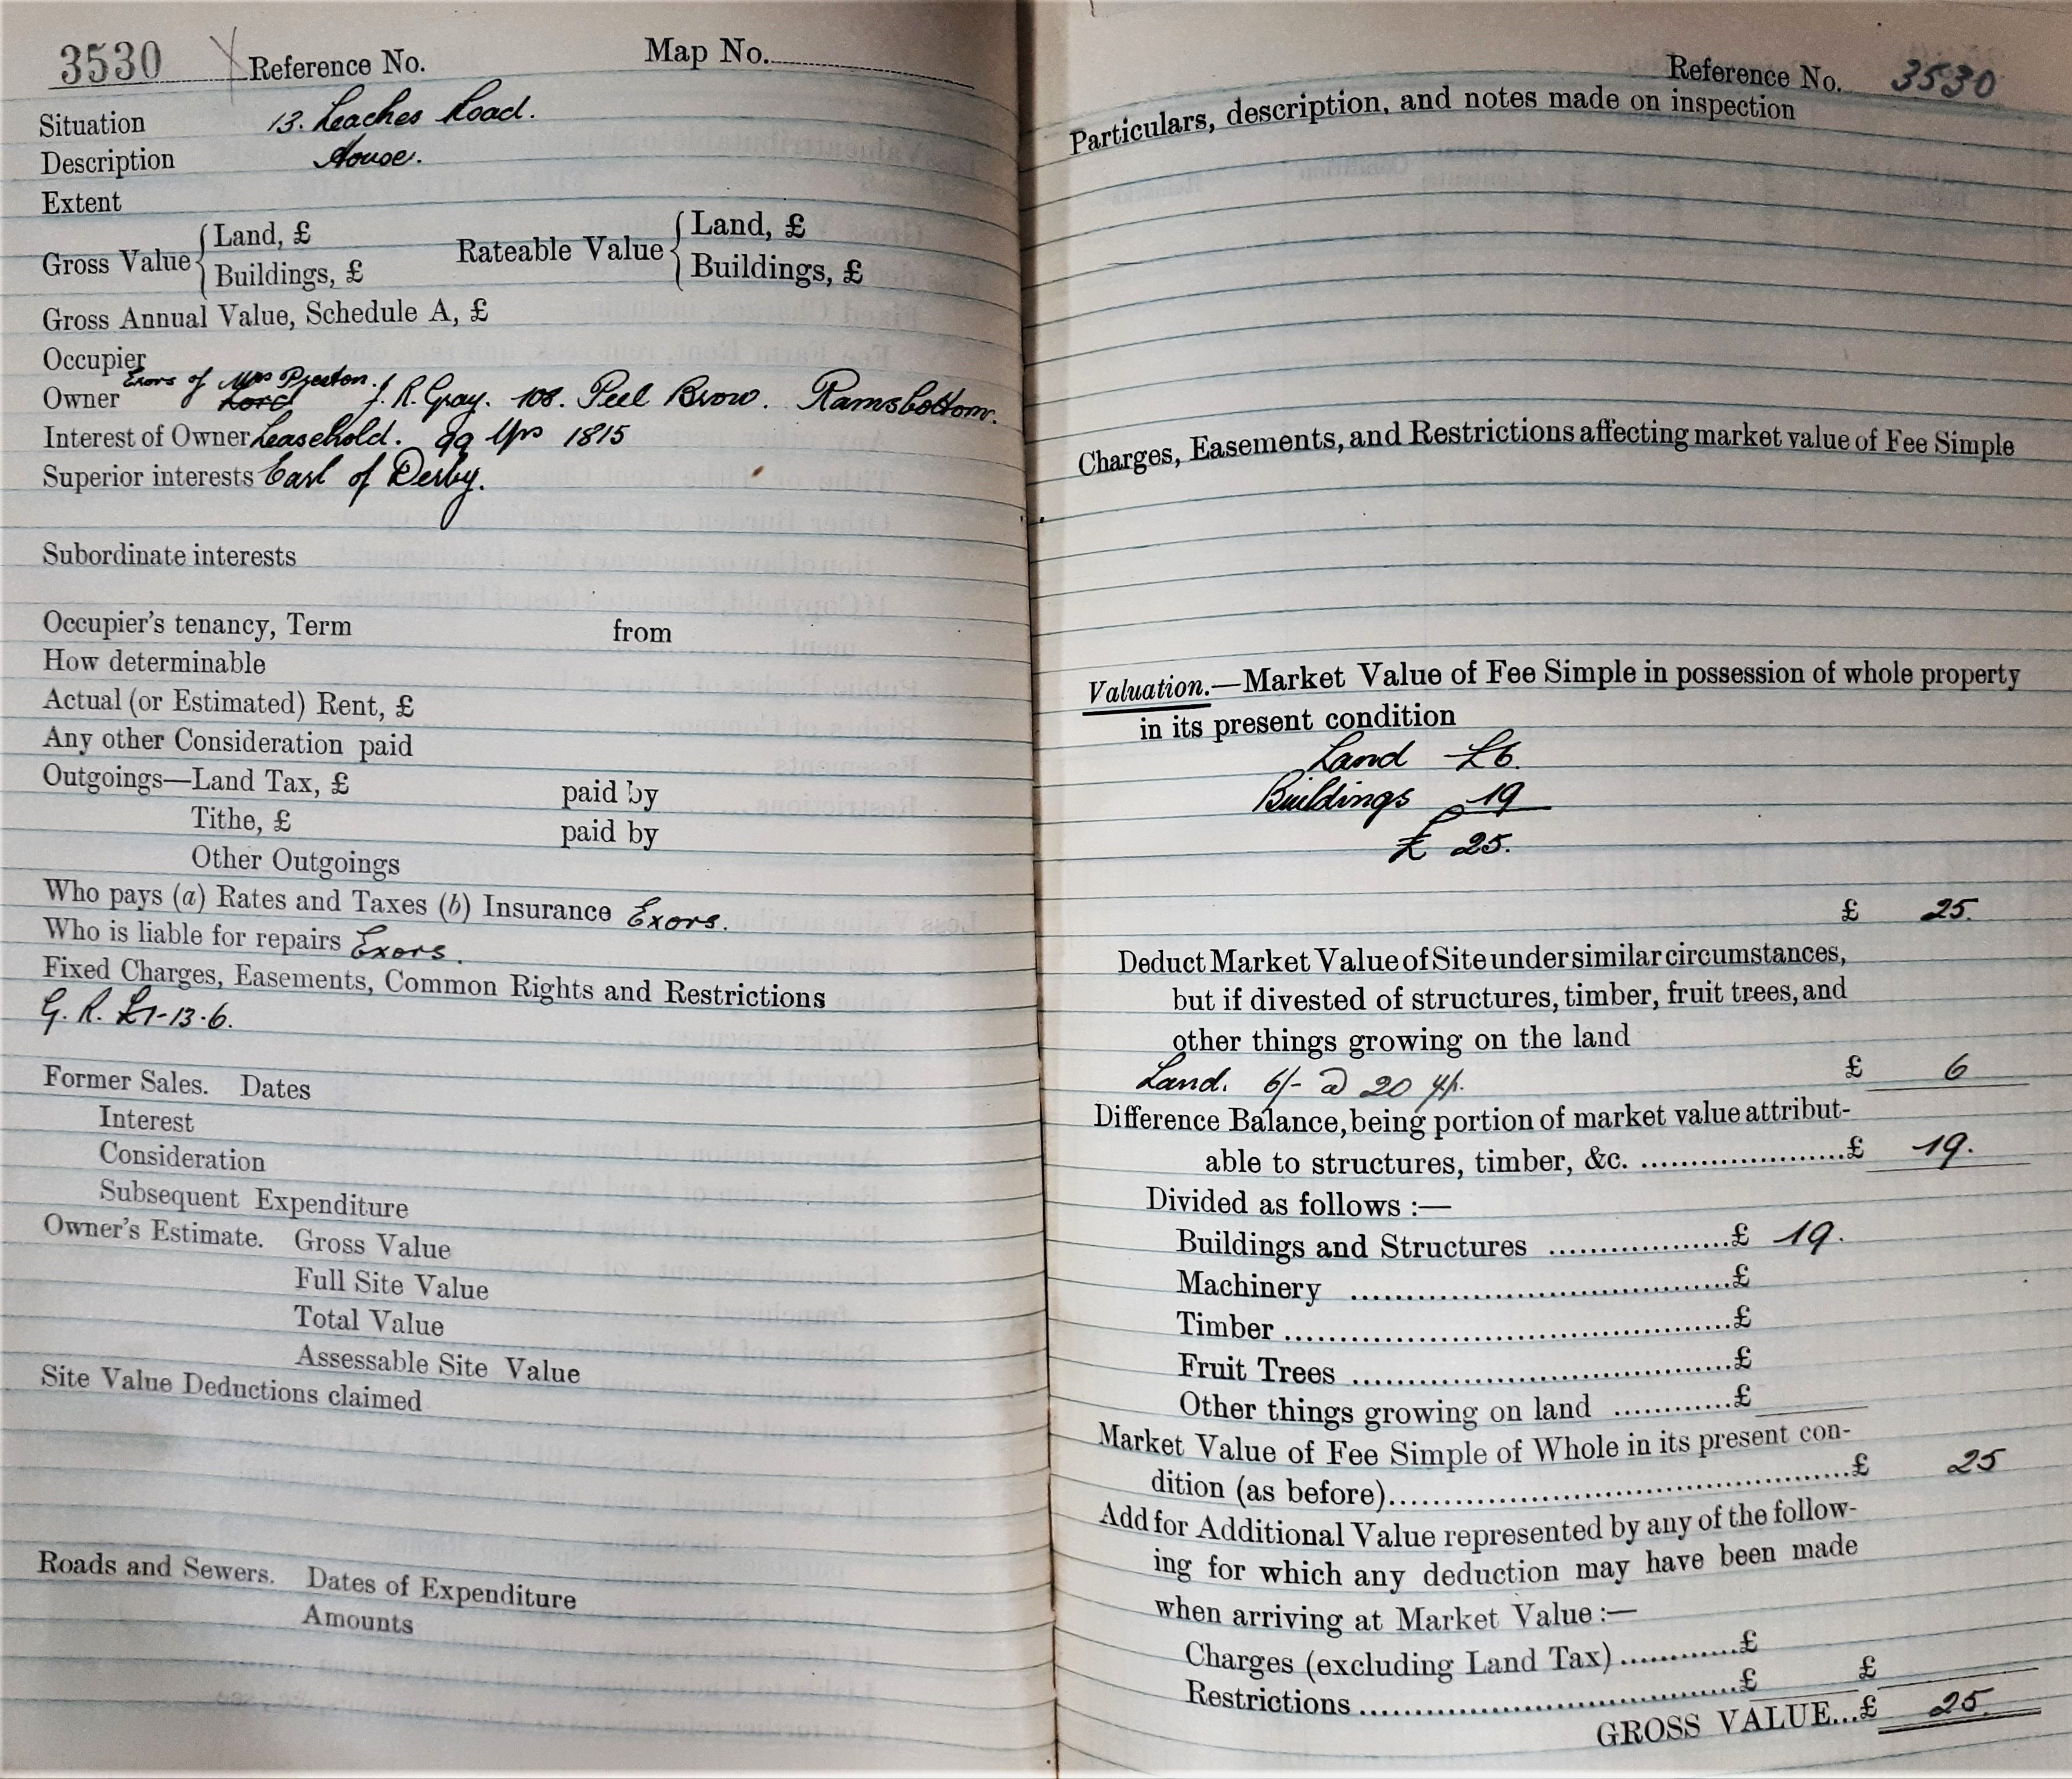 3530 Reference No. Map No.
Situation 13. Leaches Road.
Description House.
Extent
Gross Value { Land, £ Rateable Value { Land, £
Buildings, £ Buildings, £
Gross Annual Value, Schedule A, £
Occupier
Exors of Mrs Preston.
Owner Lord J. R. Gray. 108. Peel Brow. Ramsbottom.
Interest of Owner Leasehold. 99 Yrs 1815
Superior interests Earl of Derby.
Subordinate interests
Occupier's tenancy, Term from
How determinable
Actual (or Estimated) Rent, £
Any other Consideration paid
Outgoings—Land Tax, £ paid by
Tithe, £ paid by
Other Outgoings
Who pays (a) Rates and Taxes (b) Insurance Exors.
Who is liable for repairs Exors.
Fixed Charges, Easements, Common Rights and Restrictions
G. R. £1-13-6.
Former Sales. Dates
Interest
Consideration
Subsequent Expenditure
Owner's Estimate. Gross Value
Full Site Value
Total Value
Assessable Site Value
Site Value Deductions claimed
Roads and Sewers. Dates of Expenditure
Amounts
Reference No. 3530
Particulars, description, and notes made on inspection
Charges, Easements, and Restrictions affecting market value of Fee Simple
Valuation.—Market Value of Fee Simple in possession of whole property
in its present condition
Land £6.
Buildings 19
£ 25.
£ 25.
Deduct Market Value of Site under similar circumstances,
but if divested of structures, timber, fruit trees, and
other things growing on the land
Land. 6/- @ 20 yp. £ 6
Difference Balance, being portion of market value attribut-
able to structures, timber, &c. ..................... £ 19.
Divided as follows :—
Buildings and Structures ................... £ 19.
Machinery ....................................... £
Timber ............................................. £
Fruit Trees ...................................... £
Other things growing on land ............ £
Market Value of Fee Simple of Whole in its present con-
dition (as before) ............................................... £ 25
Add for Additional Value represented by any of the follow-
ing for which any deduction may have been made
when arriving at Market Value :—
Charges (excluding Land Tax) ............ £
Restrictions ...................................... £ £
GROSS VALUE... £ 25.